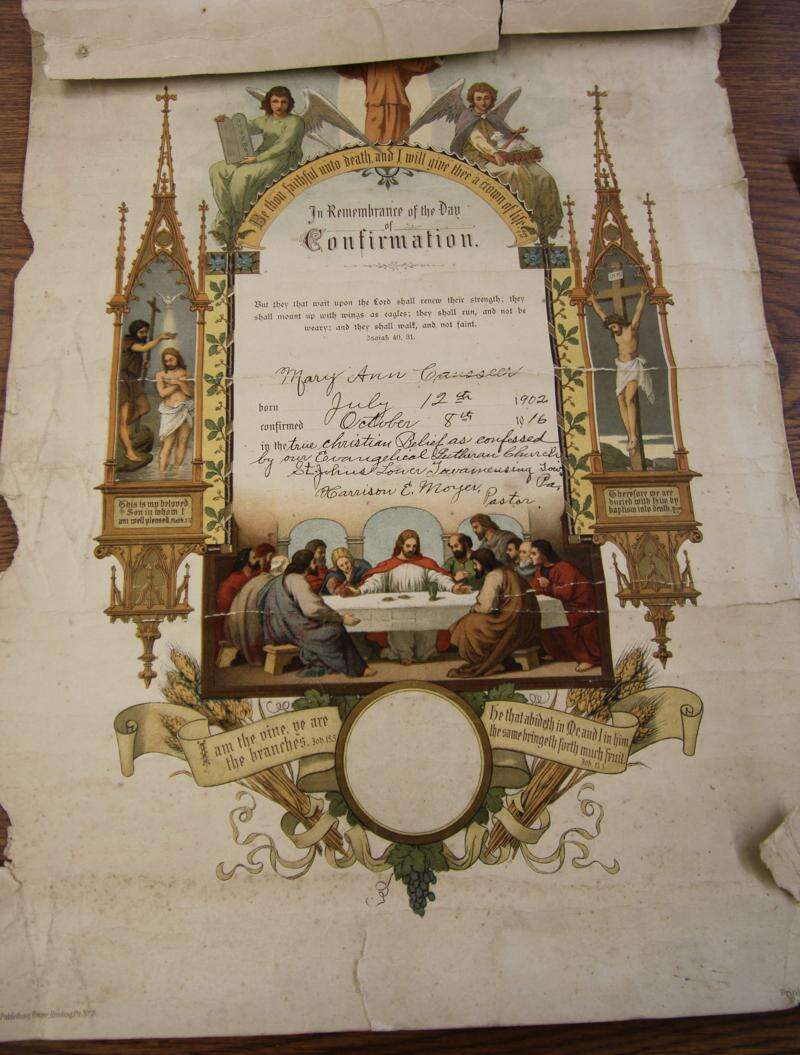 Be thou faithful unto death, and I will give thee a crown of life.
In Remembrance of the Day
of
Confirmation.
But they that wait upon the Lord shall renew their strength; they
shall mount up with wings as eagles; they shall run, and not be
weary; and they shall walk, and not faint.
Isaiah 40, 31.
Mary Ann
born July 12th 1902
confirmed October 8th 1916
in the true christian Belief as confessed
by our Evangelical Lutheran Church
St. Johns Lower Towamensing Tow.
Pa.
Harrison E. Moyer, Pastor.
INRI
This is my beloved
Son in whom I
am well pleased.
Therefore we are
buried with him by
baptism into death.
I am the vine, ye are
the branches. Joh. 15.5
He that abideth in Me and I in him,
the same bringeth forth much fruit.
Publishing House, Reading, Pa.